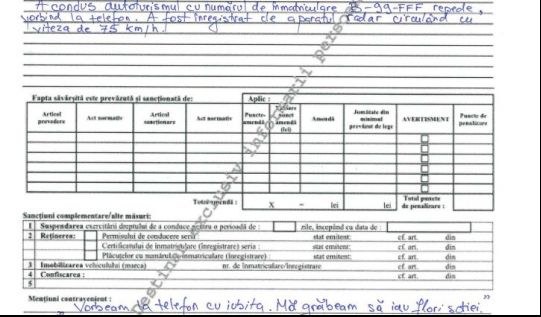 A condus autoturismul cu numărul de înmatriculare B-99-FFF repede,
vorbind la telefon. A fost înregistrat de aparatul radar circulând cu
viteza de 75 km/h.
Fapta săvârșită este prevăzută și sancționată de: Aplic :
Articol prevedere Act normativ Articol sancționare Act normativ Puncte-amendă Valoare punct amendă (lei) Amendă Jumătate din minimul prevăzut de lege AVERTISMENT Puncte de penalizare
Total amendă : X = lei lei Total puncte de penalizare :
Sancțiuni complementare/alte măsuri:
1 Suspendarea exercitării dreptului de a conduce pentru o perioadă de : zile, începînd cu data de :
2 Reținerea: Permisului de conducere seria : stat emitent: cf. art. din
Certificatului de înmatriculare (înregistrare) seria : stat emitent: cf. art. din
Plăcuțelor cu numărul de înmatriculare (înregistrare) : stat emitent: cf. art. din
3 Imobilizarea vehiculului (marca) nr. de înmatriculare/înregistrare cf. art. din
4 Confiscarea : cf. art. din
5
Mențiuni contravenient :
"Vorbeam la telefon cu iubita. Mă grăbeam să iau flori soției."